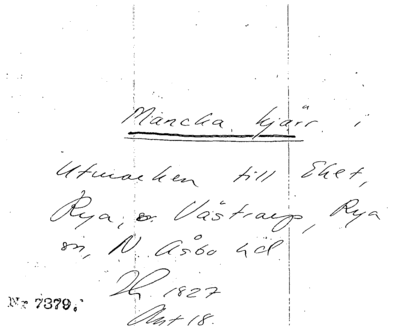 Mancka kjärr i
Utmarken till Eket,
Rya, o Västraup, Rya
sn, N Åsbo hd
1827
Akt 18.
Nr 7379.